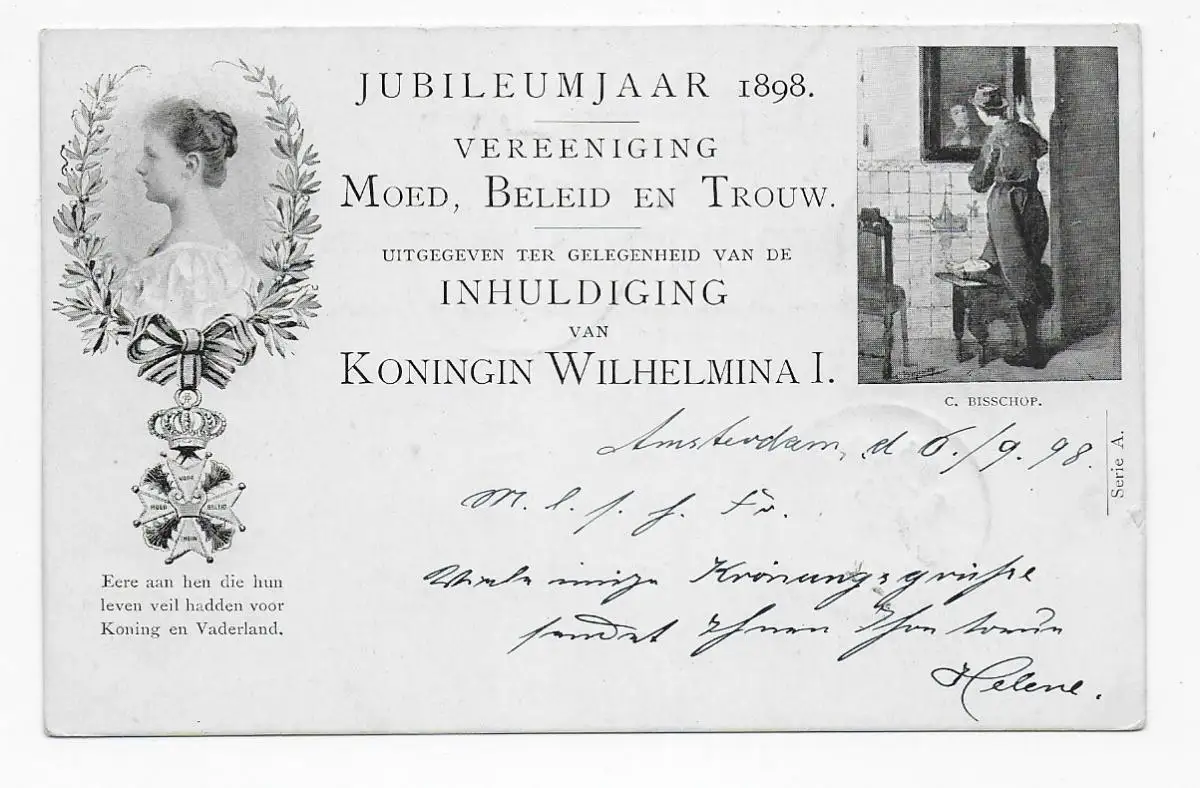 JUBILEUMJAAR 1898.
VEREENIGING
MOED, BELEID EN TROUW.
UITGEGEVEN TER GELEGENHEID VAN DE
INHULDIGING
VAN
KONINGIN WILHELMINA I.
C. BISSCHOP.
Serie A.
VOOR
MOED BELEID
TROUW
Eere aan hen die hun
leven veil hadden voor
Koning en Vaderland.
Amsterdam, d 6./9. 98.
M. l. f. f. Fr.
Viele innige Krönungsgrüße
sendet Ihnen Ihre treue
Helene.